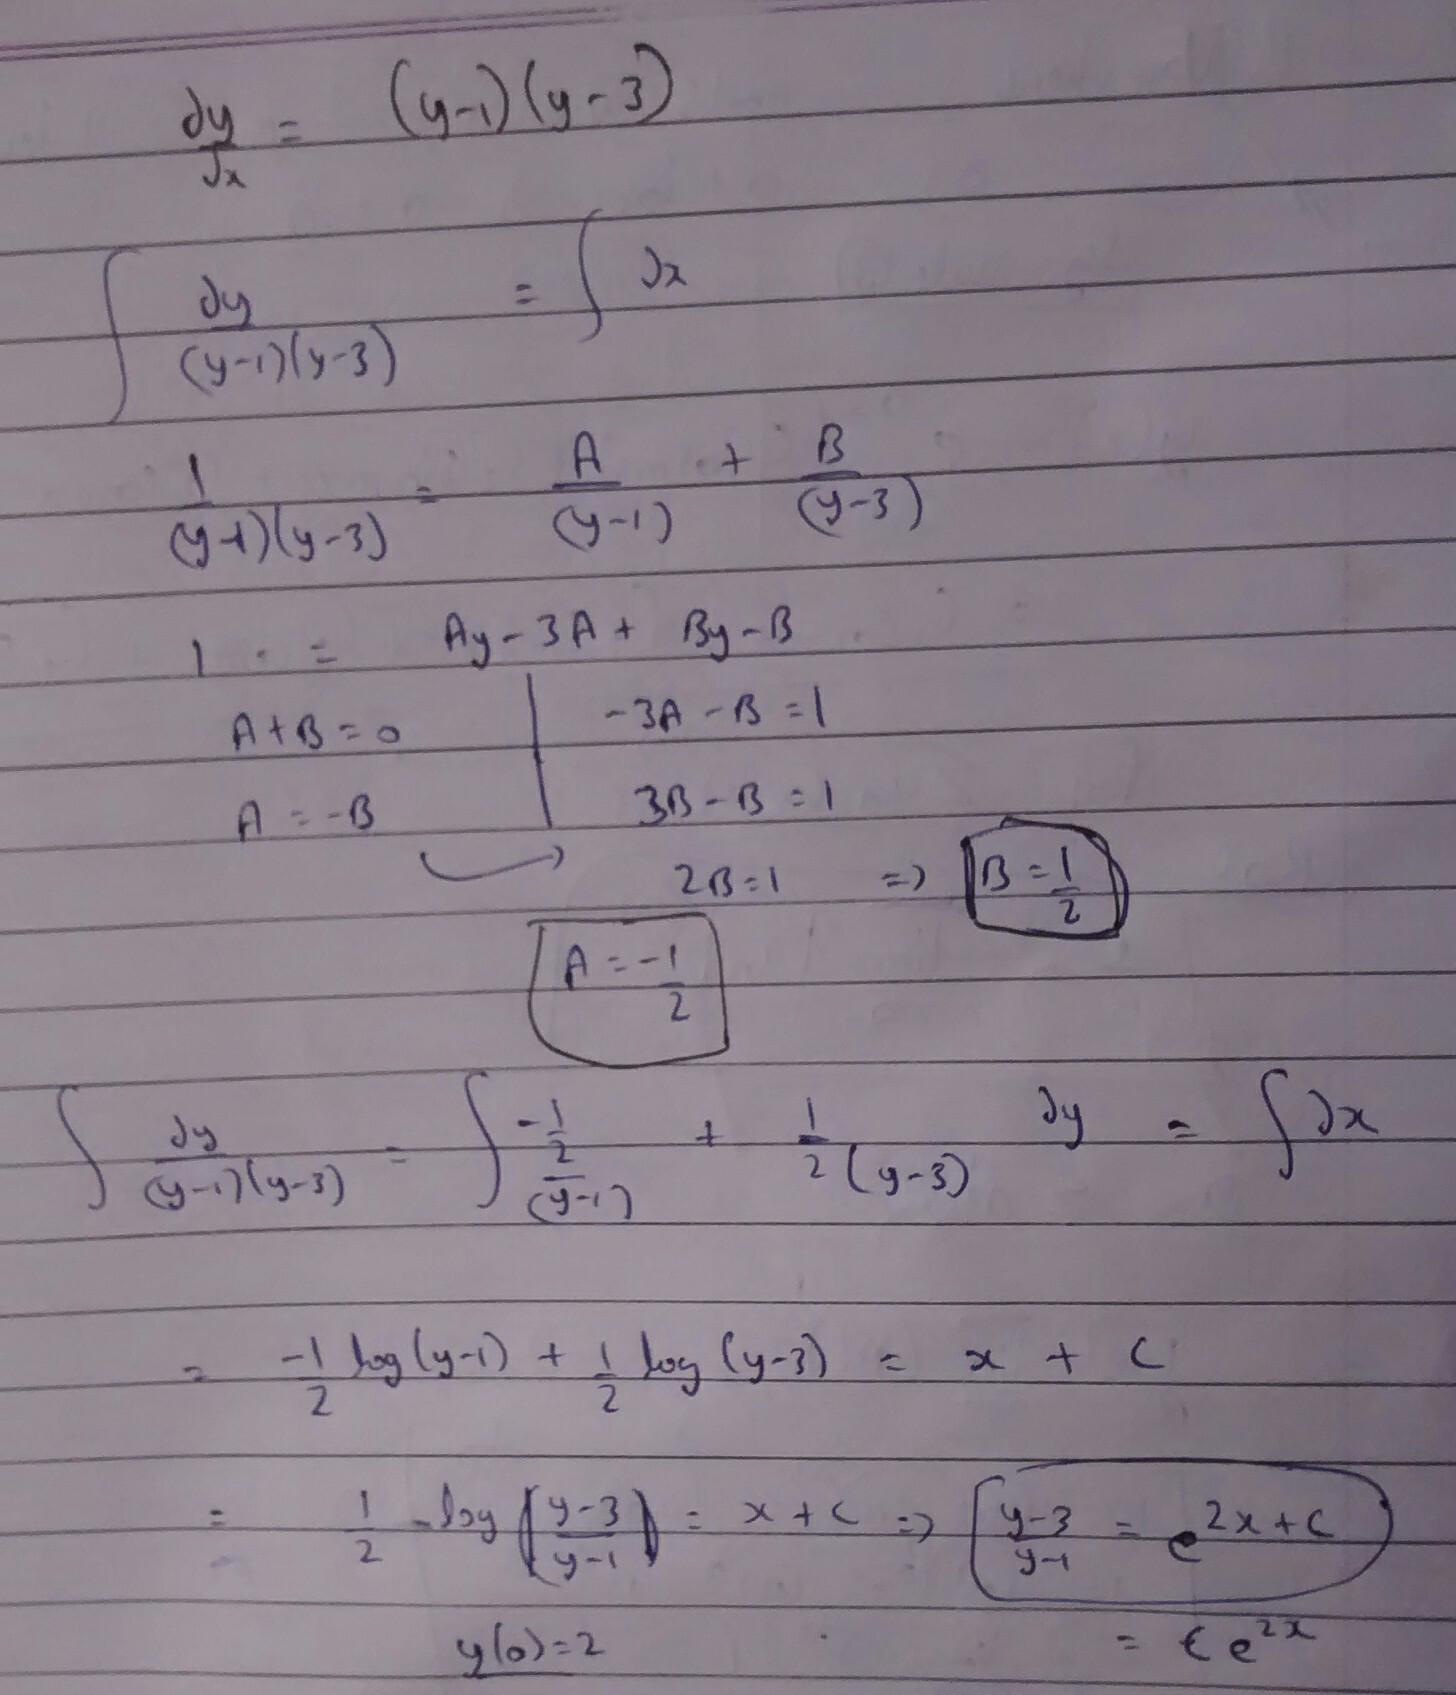 dy/dx = (y-1)(y-3)
∫ dy/(y-1)(y-3) = ∫ dx
1/(y-1)(y-3) = A/(y-1) + B/(y-3)
1 = Ay - 3A + By - B
A+B=0 | -3A - B = 1
A = -B | 3B - B = 1
2B=1 => B = 1/2
A = -1/2
∫ dy/(y-1)(y-3) = ∫ -1/2/(y-1) + 1/2(y-3) dy = ∫ dx
= -1/2 log(y-1) + 1/2 log(y-3) = x + C
= 1/2 log(y-3/y-1) = x + C => y-3/y-1 = e^2x+C
y(0)=2 = C e^2x